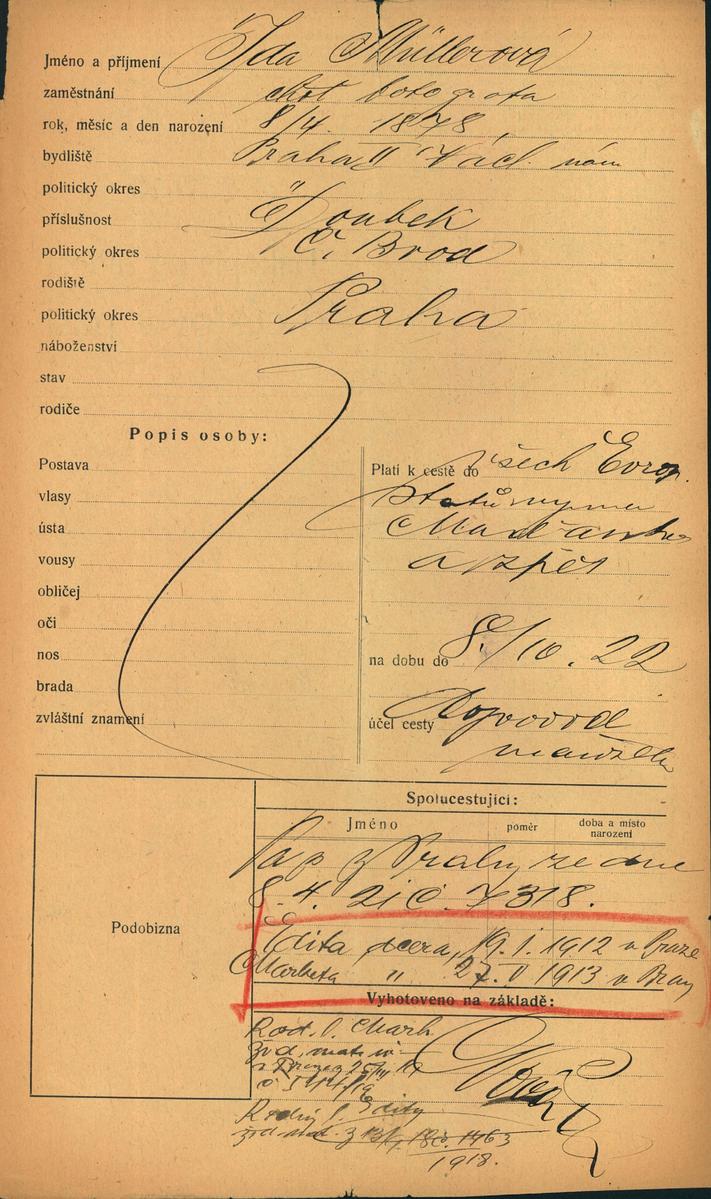 Jméno a příjmení Ida Müllerová
zaměstnání choť fotografa
rok, měsíc a den narození 8/4. 1878
bydliště Praha II Václ. nám
politický okres
příslušnost Doubek
politický okres Č. Brod
rodiště
politický okres Praha
náboženství
stav
rodiče
Popis osoby:
Postava
vlasy
ústa
vousy
obličej
oči
nos
brada
zvláštní znamení
Platí k cestě do všech Evrop.
států vyjma
Maď
a zpět
na dobu do 8./10. 22
účel cesty Doprovod
manžela
Podobizna
Spolucestující:
Jméno poměr doba a místo narození
Pas z Prahy ze dne
8. 4. 21 č. 7318.
Edita dcera, 19. I. 1912 v Praze
Markéta " 27. V 1913 v Prazy
Vyhotoveno na základě:
Rod. l. Mark
žid. mat.
z
Rodný l. Edity
žid. mat. z č. 1463
1918.